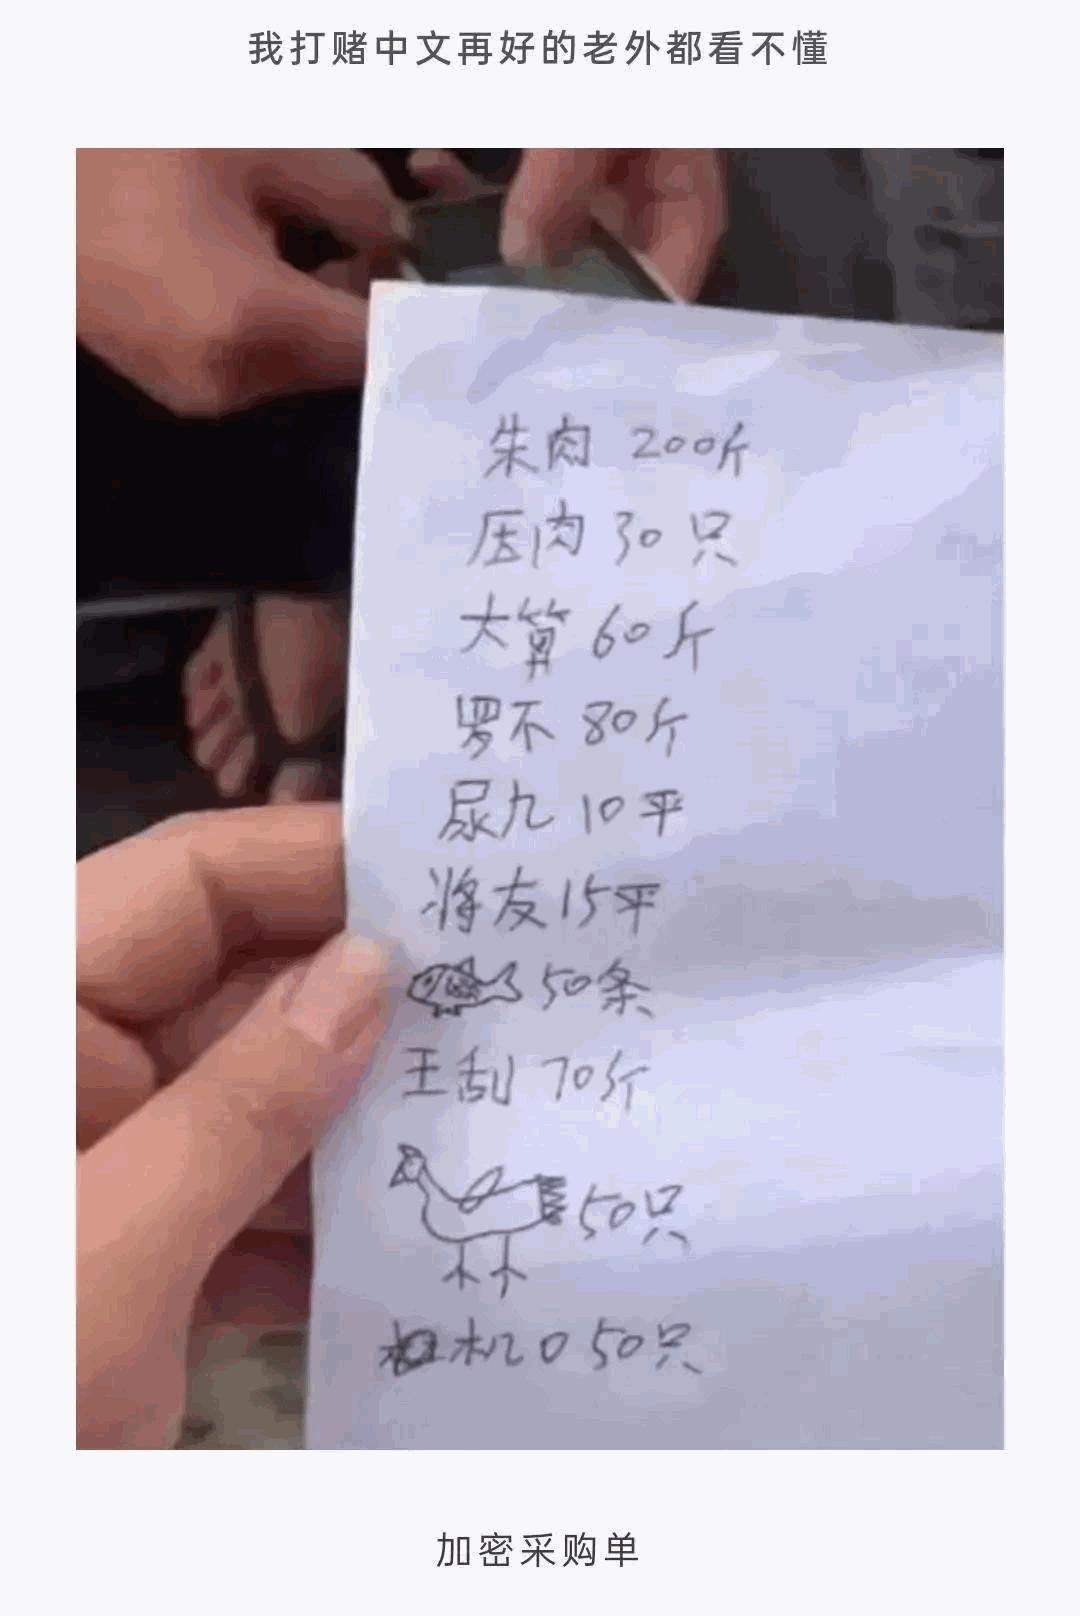 我打赌中文再好的老外都看不懂
朱肉 200斤
压肉 30只
大算 60斤
罗不 80斤
尿九 10平
将友 15平
50条
王刮 70斤
50只
机0 50只
加密采购单